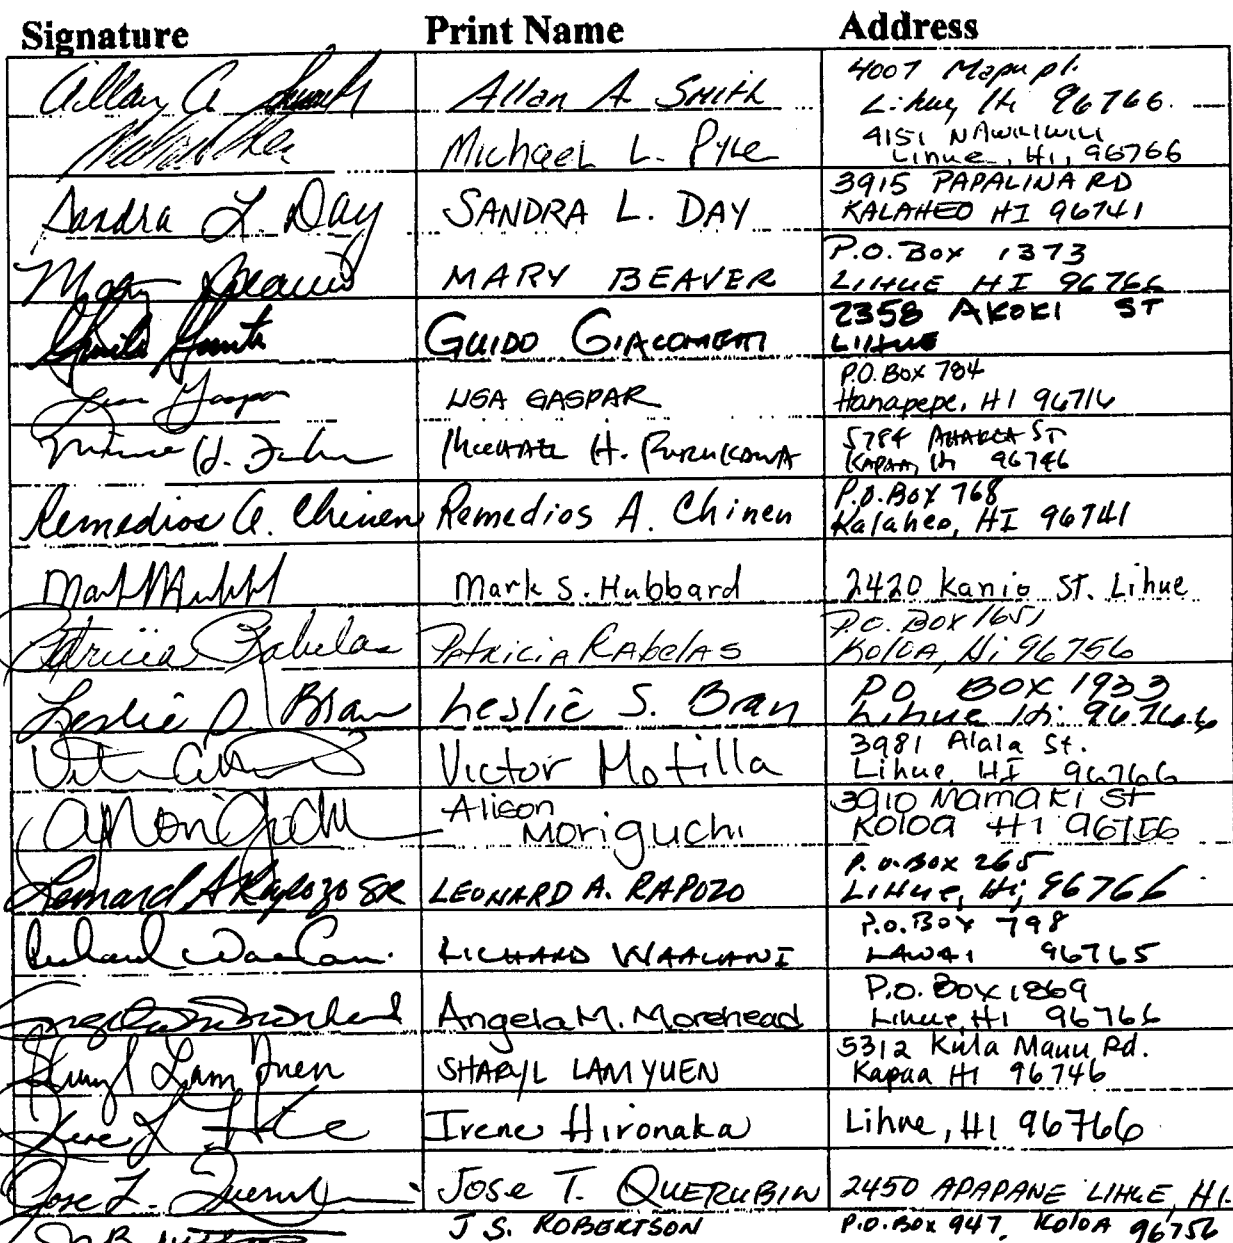 Signature Print Name Address
Allan A Smith Allan A Smith 4007 Mapu pl.
Lihue, Hi 96766
Michael L. Pyle 4151 NAWILIWILI
Lihue, Hi, 96766
Sandra L. Day SANDRA L. DAY 3915 PAPALINA RD
KALAHEO HI 96741
Mary Beaver MARY BEAVER P.O. Box 1373
LIHUE HI 96766
GUIDO GIACOMETTI 2358 AKOKI ST
LIHUE
Lisa Gaspar LISA GASPAR P.O. Box 784
Hanapepe, HI 96716
MICHAEL H. FURUKAWA 5784 ST
KAPAA, Hi 96746
Remedios A. Chinen Remedios A. Chinen P.O. Box 768
Kalaheo, HI 96741
Mark S. Hubbard 2420 Kanio ST. Lihue
Patricia Rabelas Patricia Rabelas P.O. Box 1651
Koloa, Hi 96756
Leslie S. Bran Leslie S. Bran P.O BOX 1933
Lihue Hi. 96766
Victor Motilla 3981 Alala St.
Lihue HI 96766
AMoriguchi Alison
Moriguchi 3910 Mamaki St
Koloa HI 96756
Leonard A Rapozo SR LEONARD A. RAPOZO P.O. Box 265
LIHUE, Hi, 96766
RICHARD WAALANI P.O. Box 798
LAWAI 96765
Angela M. Morehead Angela M. Morehead P.O. Box 1869
Lihue, HI 96766
Sharyl Lam Yuen SHARYL LAM YUEN 5312 Kula Mauu Rd.
Kapaa HI 96746
Irene Hironaka Lihue, HI 96766
Jose T. QUERUBIN 2450 APAPANE LIHUE, HI.
J S. ROBERTSON P.O. Box 947, KOLOA 96756